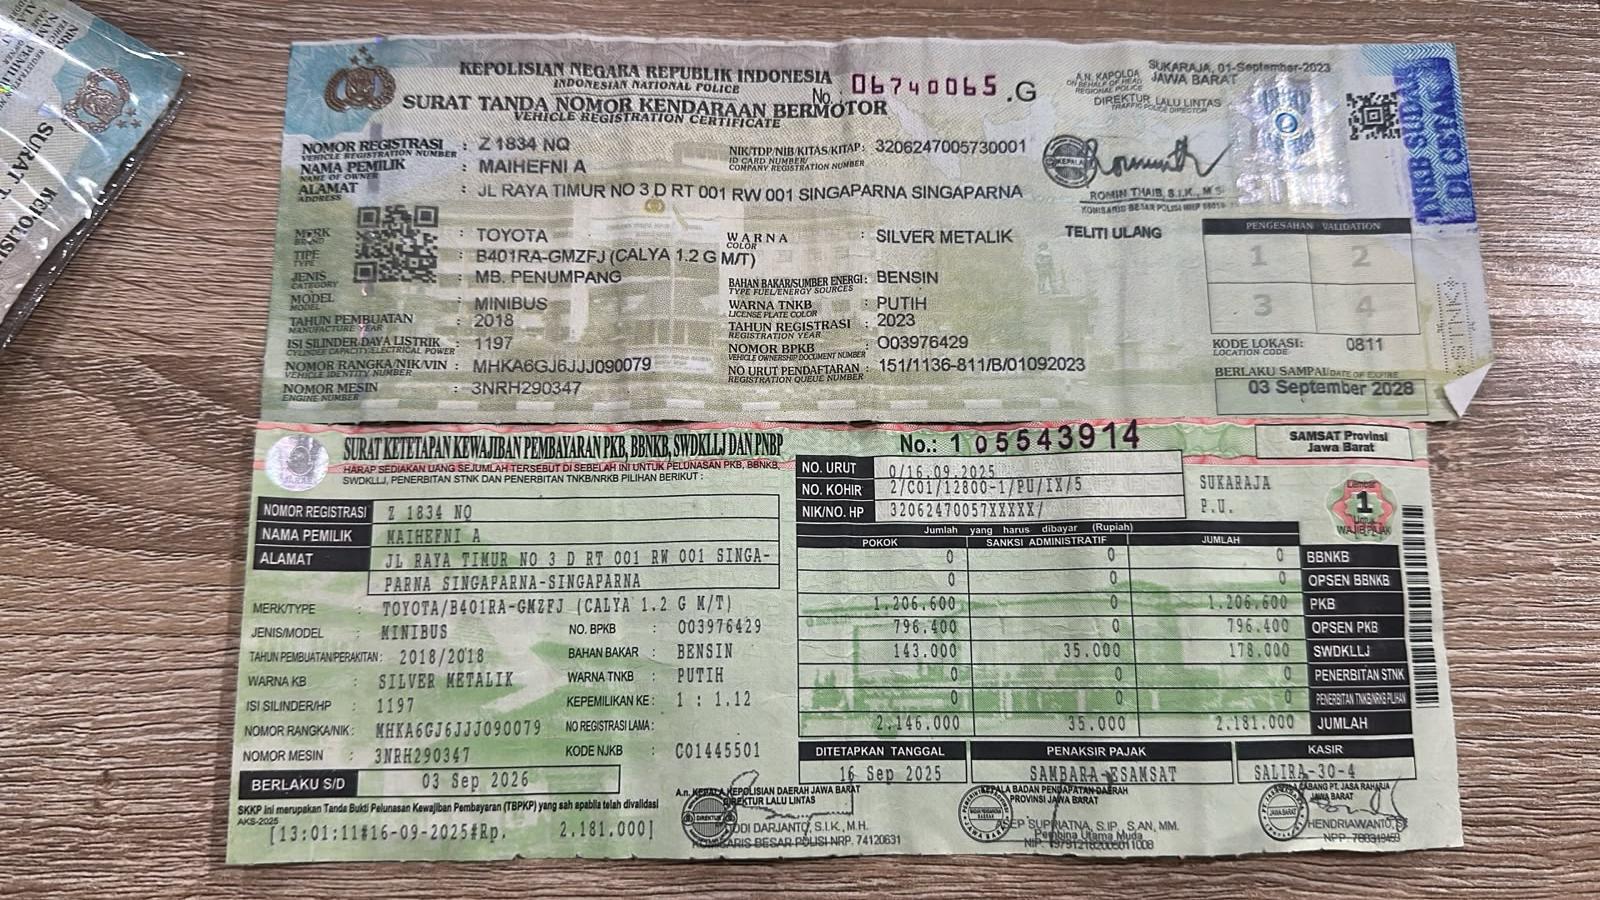 KEPOLISIAN NEGARA REPUBLIK INDONESIA
INDONESIAN NATIONAL POLICE
No. 06740065 .G
SURAT TANDA NOMOR KENDARAAN BERMOTOR
VEHICLE REGISTRATION CERTIFICATE
SUKARAJA, 01-September-2023
A.N. KAPOLDA JAWA BARAT
ON BEHALF OF HEAD REGIONAL POLICE
DIREKTUR LALU LINTAS
TRAFFIC POLICE DIRECTOR
NOMOR REGISTRASI : Z 1834 NQ
VEHICLE REGISTRATION NUMBER
NIK/TDP/NIB/KITAS/KITAP: 3206247005730001
ID CARD NUMBER/
COMPANY REGISTRATION NUMBER
NAMA PEMILIK : MAIHEFNI A
NAME OF OWNER
ALAMAT : JL RAYA TIMUR NO 3 D RT 001 RW 001 SINGAPARNA SINGAPARNA
ADDRESS
KEPALA
ROMIN THAIB, S.I.K., M.S
MERK : TOYOTA
BRAND
WARNA : SILVER METALIK
COLOR
TELITI ULANG
TIPE : B401RA-GMZFJ (CALYA 1.2 G M/T)
TYPE
JENIS : MB. PENUMPANG
CATEGORY
BAHAN BAKAR/SUMBER ENERGI: BENSIN
TYPE FUEL/ENERGY SOURCES
MODEL : MINIBUS
MODEL
WARNA TNKB : PUTIH
LICENSE PLATE COLOR
TAHUN PEMBUATAN : 2018
MANUFACTURE YEAR
TAHUN REGISTRASI : 2023
REGISTRATION YEAR
ISI SILINDER/DAYA LISTRIK : 1197
CYLINDER CAPACITY/ELECTRICAL POWER
NOMOR BPKB : O03976429
VEHICLE OWNERSHIP DOCUMENT NUMBER
NOMOR RANGKA/NIK/VIN : MHKA6GJ6JJJ090079
VEHICLE IDENTITY NUMBER
NO URUT PENDAFTARAN : 151/1136-811/B/01092023
REGISTRATION QUEUE NUMBER
NOMOR MESIN : 3NRH290347
ENGINE NUMBER
PENGESAHAN VALIDATION
1 2
3 4
KODE LOKASI: 0811
LOCATION CODE
BERLAKU SAMPAI/DATE OF EXPIRE
03 September 2028
SURAT KETETAPAN KEWAJIBAN PEMBAYARAN PKB, BBNKB, SWDKLLJ DAN PNBP
HARAP SEDIAKAN UANG SEJUMLAH TERSEBUT DI SEBELAH INI UNTUK PELUNASAN PKB, BBNKB,
SWDKLLJ, PENERBITAN STNK DAN PENERBITAN TNKB/NRKB PILIHAN BERIKUT :
No.: 105543914
SAMSAT Provinsi
Jawa Barat
NO. URUT 0/16.09.2025
NO. KOHIR 2/C01/12800-1/PU/IX/5
NIK/NO. HP 32062470057XXXXX/
SUKARAJA
P.U.
Lembar
1
Untuk
WAJIB PAJAK
NOMOR REGISTRASI Z 1834 NQ
NAMA PEMILIK MAIHEFNI A
ALAMAT JL RAYA TIMUR NO 3 D RT 001 RW 001 SINGA-
PARNA SINGAPARNA-SINGAPARNA
MERK/TYPE : TOYOTA/B401RA-GMZFJ (CALYA 1.2 G M/T)
JENIS/MODEL : MINIBUS
NO. BPKB : O03976429
TAHUN PEMBUATAN/PERAKITAN : 2018/2018
BAHAN BAKAR : BENSIN
WARNA KB : SILVER METALIK
WARNA TNKB : PUTIH
ISI SILINDER/HP : 1197
KEPEMILIKAN KE : 1 : 1.12
NOMOR RANGKA/NIK : MHKA6GJ6JJJ090079
NO REGISTRASI LAMA :
NOMOR MESIN : 3NRH290347
KODE NJKB : C01445501
BERLAKU S/D 03 Sep 2026
SKKP ini merupakan Tanda Bukti Pelunasan Kewajiban Pembayaran (TBPKP) yang sah apabila telah divalidasi
AKS-2025
[13:01:11#16-09-2025#Rp. 2.181.000]
Jumlah yang harus dibayar (Rupiah)
POKOK SANKSI ADMINISTRATIF JUMLAH
0 0 0 BBNKB
0 0 0 OPSEN BBNKB
1.206.600 0 1.206.600 PKB
796.400 0 796.400 OPSEN PKB
143.000 35.000 178.000 SWDKLLJ
0 0 0 PENERBITAN STNK
0 0 0 PENERBITAN TNKB/NRKB PILIHAN
2.146.000 35.000 2.181.000 JUMLAH
DITETAPKAN TANGGAL PENAKSIR PAJAK KASIR
16 Sep 2025 SAMBARA-ESAMSAT SALIRA-30-4
A.n. KEPALA KEPOLISIAN DAERAH JAWA BARAT
DIREKTUR LALU LINTAS
DODI DARJANTO, S.I.K., M.H.
KOMISARIS BESAR POLISI NRP. 74120631
KEPALA BADAN PENDAPATAN DAERAH
PROVINSI JAWA BARAT
ASEP SUPRIATNA, S.IP, S.AN, MM.
Pembina Utama Muda
CABANG PT. JASA RAHARJA
JAWA BARAT
HENDRIAWANTO